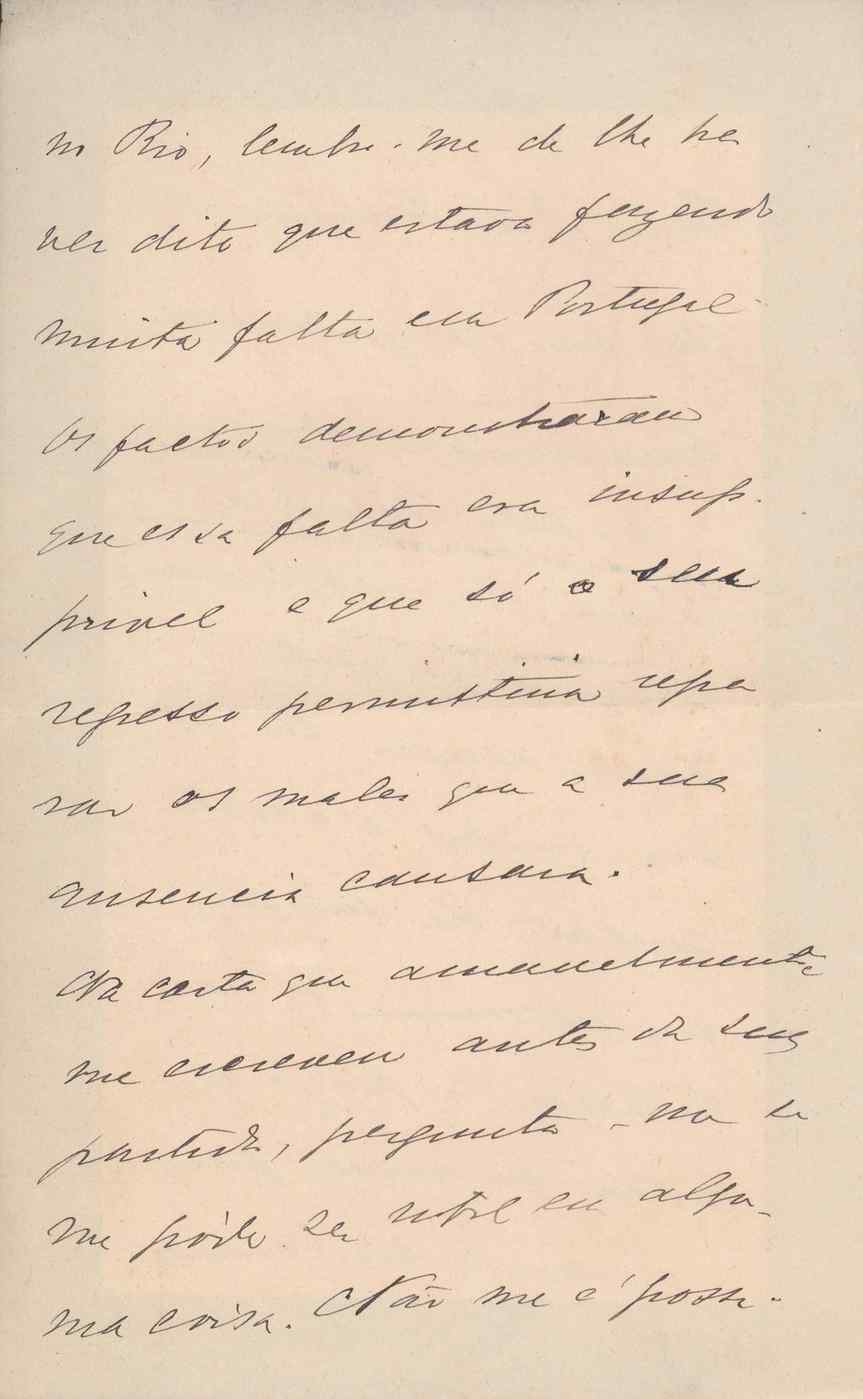 no Rio, lembro-me de lhe ha
ver dito que estava fazendo
muita falta em Portugal.
Os factos demonstraram
que essa falta era insup-
privel e que só o seu
regresso permittiria repa
rar os males que a sua
ausencia causara.
Na carta que amavelmente
me escreveu antes da sua
partida, pergunta-me se
me póde ser util em algu-
ma coisa. Não me é possi-